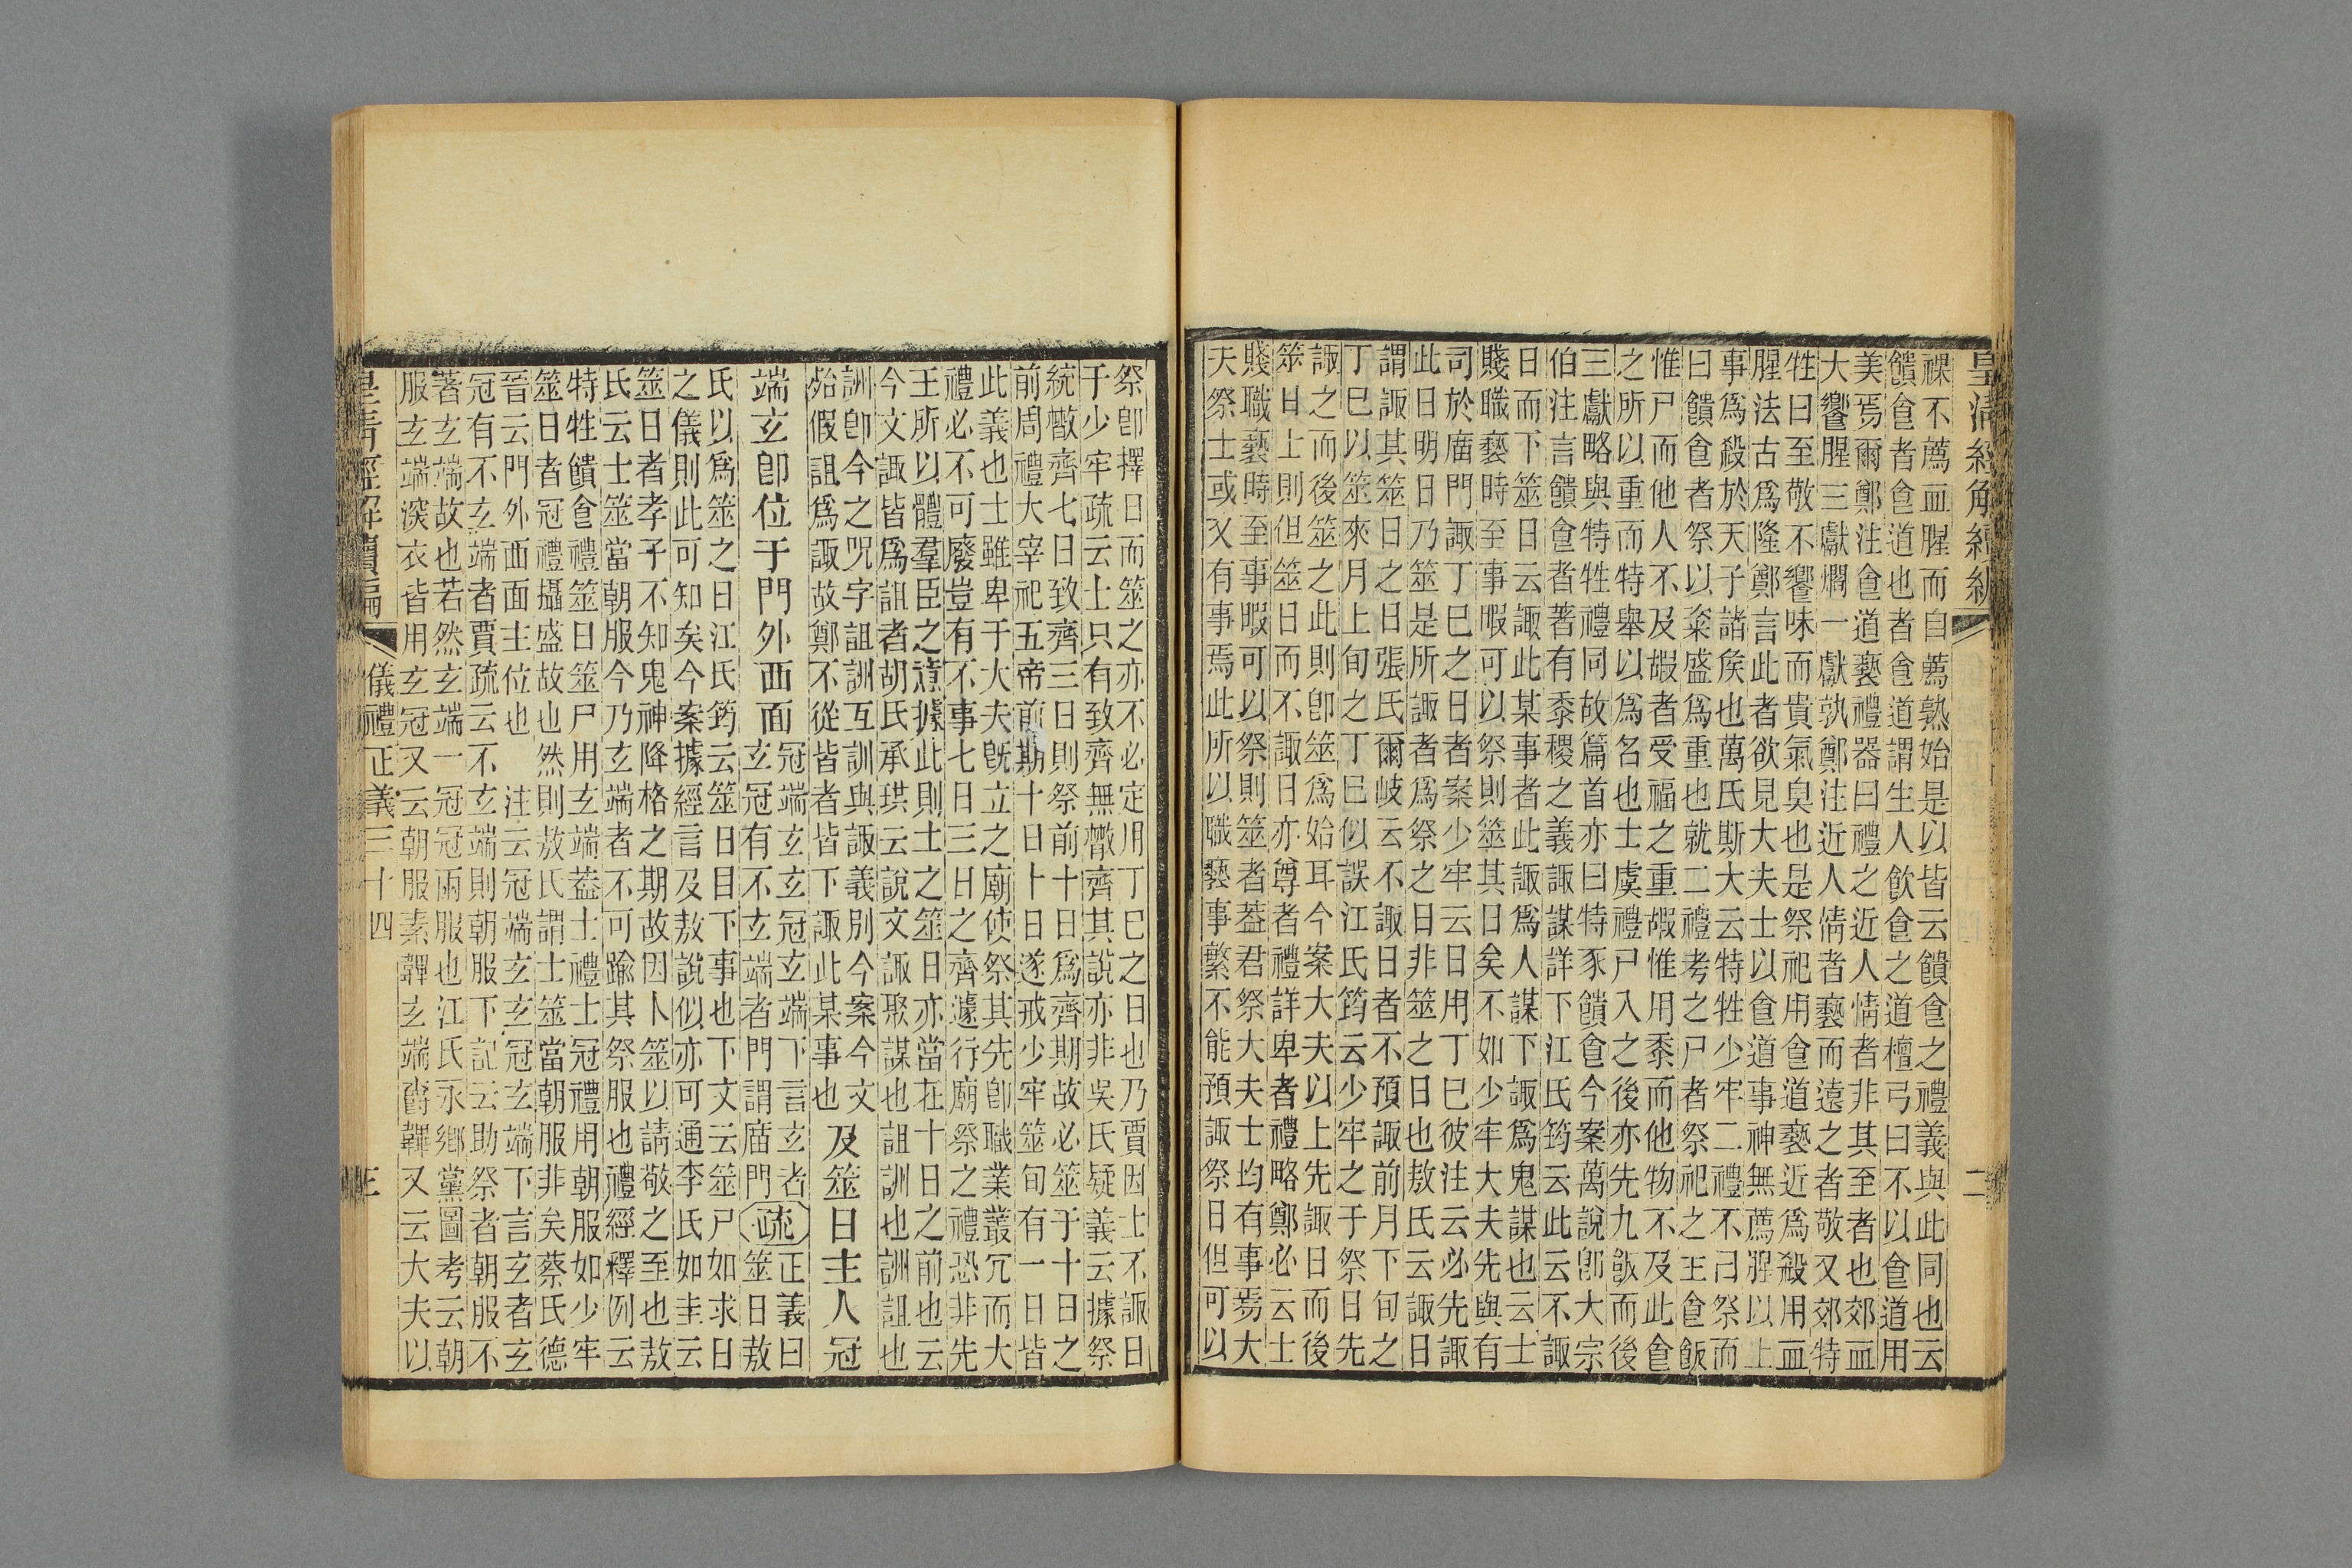 皇清經解續編
二
祼不薦血腥而自薦熟始是以皆云饋食之禮義與此同也云
饋食者食道也者食道謂生人飲食之道檀弓曰不以食道用
美焉爾鄭注食道褻禮器曰禮之近人情者非其至者也郊血
大饗腥三獻爓一獻孰鄭注近人情者褻而遠之者敬又郊特
牲曰至敬不饗味而貴氣臭也是祭祀用食道褻近爲殺用血
腥法古爲隆鄭言此者欲見大夫士以食道事神無薦腥以上
事爲殺於天子諸矦也萬氏斯大云特牲少牢二禮不曰祭而
曰饋食者祭以粢盛爲重也就二禮考之尸者祭祀之主食飯
惟尸而他人不及嘏者受福之重嘏惟用黍而他物不及此食
之所以重而特舉以爲名也士虞禮尸入之後亦先九飯而後
三獻略與特牲禮同故篇首亦曰特豕饋食今案萬說卽大宗
伯注言饋食者著有黍稷之義諏謀詳下江氏筠云此云不諏
日而下筮日云諏此某事者此諏爲人謀下諏爲鬼謀也云士
賤職褻時至事暇可以祭則筮其日矣不如少牢大夫先與有
司於庙門諏丁巳之日者案少牢云日用丁巳彼注云必先諏
此日明日乃筮是所諏者爲祭之日非筮之日也敖氏云諏日
謂諏其筮日之日張氏爾岐云不諏日者不預諏前月下旬之
丁巳以筮來月上旬之丁巳似誤江氏筠云少牢之于祭日先
諏之而後筮之此則卽筮爲始耳今案大夫以上先諏日而後
筮日上則但筮日而不諏日亦尊者禮詳卑者禮略鄭必云士
賤職褻時至事暇可以祭則筮者蓋君祭大夫士均有事焉大
夫祭士或又有事焉此所以職褻事繁不能預諏祭日但可以
祭卽擇日而筮之亦不必定用丁巳之日也乃賈因士不諏日
于少牢疏云士只有致齊無㪚齊其說亦非吳氏疑義云據祭
統㪚齊七日致齊三日則祭前十日爲齊期故必筮于十日之
前周禮大宰祀五帝前期十日卜日遂戒少牢筮旬有一日皆
此義也士雖卑于大夫旣立之廟使祭其先卽職業叢冗而大
禮必不可廢豈有不事七日三日之齊遽行廟祭之禮恐非先
王所以體羣臣之意據此則士之筮日亦當在十日之前也云
今文諏皆爲詛者胡氏承珙云說文諏聚謀也詛訓也訓詛也
訓卽今之呪字詛訓互訓與諏義別今案今文
殆假詛爲諏故鄭不從皆者皆下諏此某事也
及筮日主人冠
端玄卽位于門外西面
冠端玄玄冠玄端下言玄者
玄冠有不玄端者門謂庙門
疏
正義曰
筮日敖
氏以爲筮之日江氏筠云筮日目下事也下文云筮尸如求日
之儀則此可知矣今案據經言及敖說似亦可通李氏如圭云
筮日者孝子不知鬼神降格之期故因卜筮以請敬之至也敖
氏云士筮當朝服今乃玄端者不可踰其祭服也禮經釋例云
特牲饋食禮筮日筮尸用玄端葢士禮士冠禮用朝服如少牢
筮日者冠禮攝盛故也然則敖氏謂士筮當朝服非矣蔡氏德
晉云門外西面主位也　注云冠端玄玄冠玄端下言玄者玄
冠有不玄端者賈疏云不玄端則朝服下記云助祭者朝服不
著玄端故也若然玄端一冠冠兩服也江氏永鄉黨圖考云朝
服玄端深衣皆用玄冠又云朝服素韠玄端爵韠又云大夫以
皇清經解續編
儀禮正義三十四
三